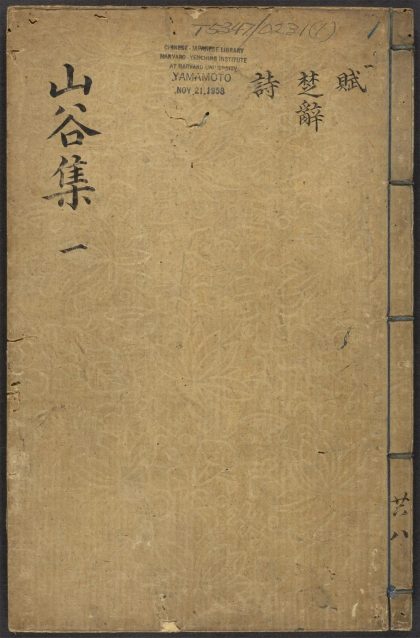 T5347/0231(1)
CHINESE-JAPANESE LIBRARY
HARVARD-YENCHING INSTITUTE
AT HARVARD UNIVERSITY
YAMAMOTO
NOV 21 1958
賦
楚辭
詩
山谷集 一
共八